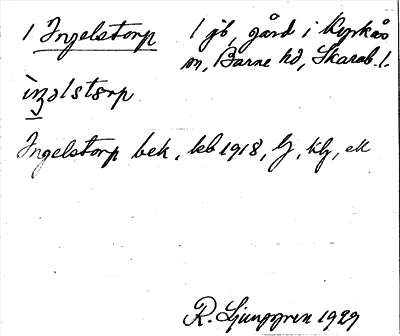 1 Ingelstorp 1 jb, gård i Kyrkås
sn, Barne hd, Skarab. l.
Ingelstorp bek, kb 1918, lj, klj, ek
R. Ljunggren 1929